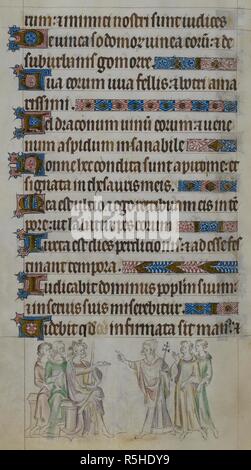 rum: et inimici nostri sunt iudices
De uinea sodomor uinea eorum: et de
suburbanis gomorre
Uua eorum uua fellis: et botri ama
rissimi
Fel draconum uinum eorum: et uene
num aspidum insanabile
Nonne hec condita sunt apud me: et
signata in thesauris meis
Mea est ultio et ego retribuam eis in tem
pore: ut labatur pes eorum
Iuxta est dies perdicionis: et adesse fes
tinant tempora
Iudicabit dominus populum suum:
et in seruis suis miserebitur
Uidebit quod infirmata sit manus
alamy
R5HDY9